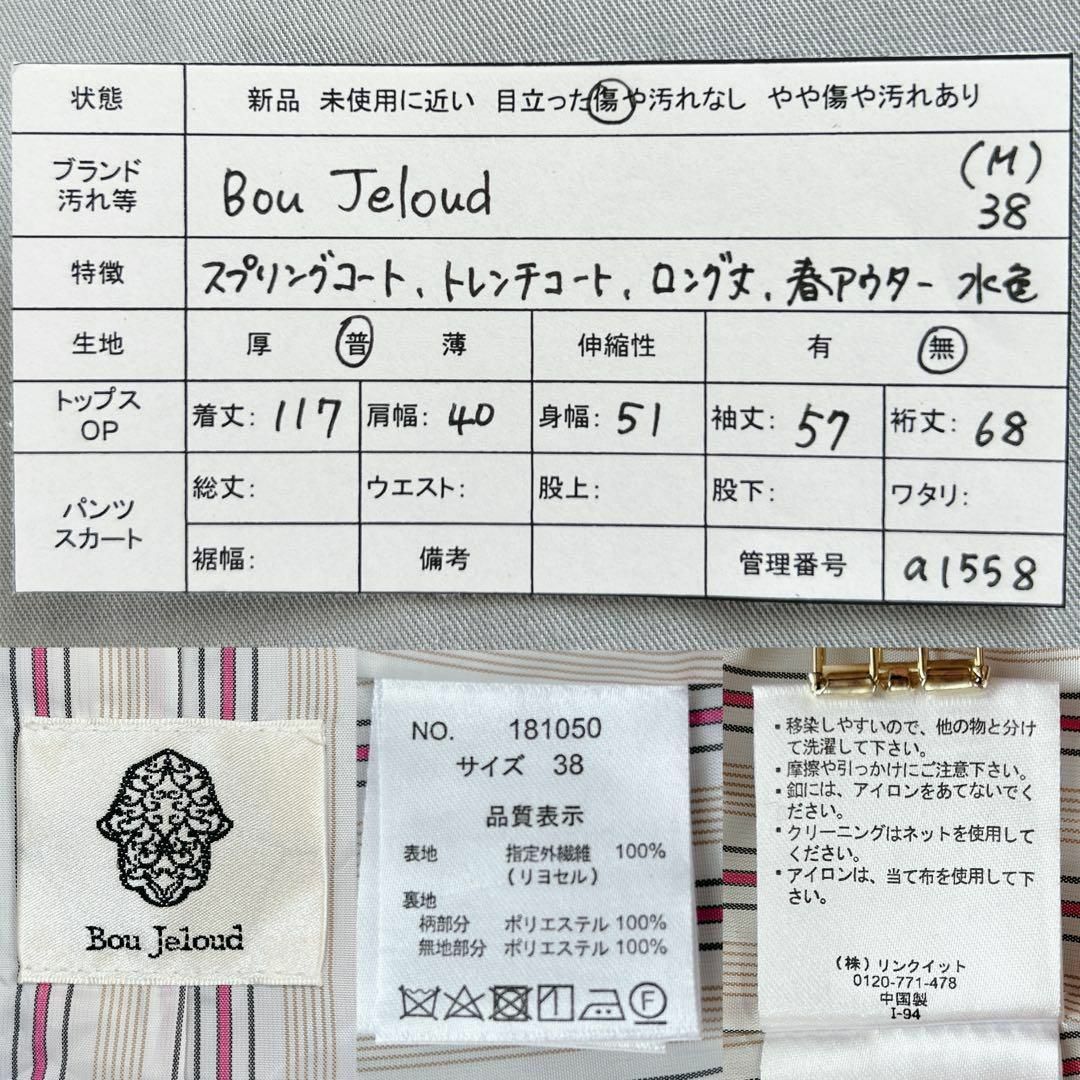 状態 新品 未使用に近い 目立った傷や汚れなし やや傷や汚れあり
ブランド
汚れ等
Bou Jeloud
(M)
38
特徴 スプリングコート、トレンチコート、ロング丈、春アウター 水色
生地 厚 普 薄 伸縮性 有 無
トップス
OP
着丈: 117 肩幅: 40 身幅: 51 袖丈: 57 裄丈: 68
パンツ
スカート
総丈: ウエスト: 股上: 股下: ワタリ:
裾幅: 備考 管理番号 a1558
Bou Jeloud
NO. 181050
サイズ 38
品質表示
表地 指定外繊維 100%
(リヨセル)
裏地
柄部分 ポリエステル 100%
無地部分 ポリエステル 100%
F
・移染しやすいので、他の物と分け
て洗濯して下さい。
・摩擦や引っかけにご注意下さい。
・釦には、アイロンをあてないでく
ださい。
・クリーニングはネットを使用して
ください。
・アイロンは、当て布を使用して下
さい。
(株)リンクイット
0120-771-478
中国製
I-94